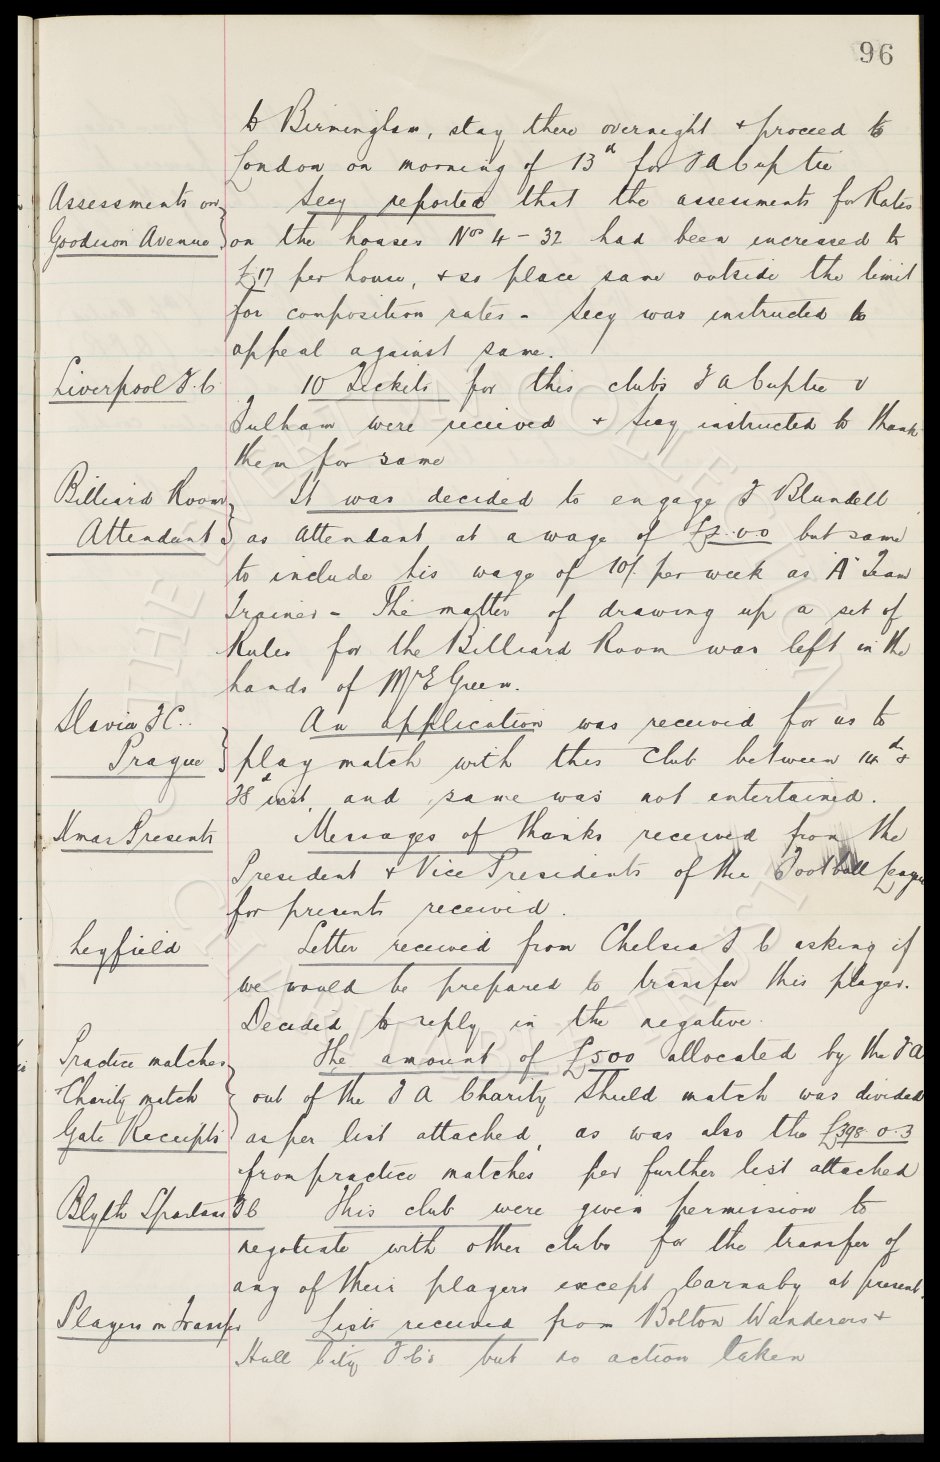 96
to Birmingham, stay there overnight + proceed to
London on morning of 13th for F A Cup tie
Assessments on
Secy reported that the assessments for Rates
Goodison Avenue
on the houses Nos 4 - 32 had been increased to
£17 per house, + so place same outside the limit
for composition rates - Secy was instructed to
appeal against same.
Liverpool F.C.
10 Tickets for this clubs F A Cuptie v
Fulham were received + Secy instructed to thank
them for same
Billiard Room
It was decided to engage F Blundell
Attendant
as attendant at a wage of but same
to include his wage of 10/ per week as "A" Team
Trainer - The matter of drawing up a set of
Rules for the Billiard Room was left in the
hands of Mr E Green.
Slavia F.C.
An application was received for us to
Prague
play match with this Club between 14th +
28th inst, and same was not entertained.
Xmas Presents
Messages of thanks received from the
President + Vice Presidents of the Football League
for presents received.
Leyfield
Letter received from Chelsea F C asking if
we would be prepared to transfer this player.
Decided to reply in the negative.
Practice matches
The amount of £500 allocated by the F A
Charity match
out of the F A Charity Shield match was divided
Gate Receipts
as per list attached, as was also the £398-0-3
from practice matches per further list attached
Blyth Spartans F C
This club were given permission to
negotiate with other clubs for the transfer of
any of their players except Carnaby at present.
Players on Transfer
Lists received from Bolton Wanderers +
Hull City F.C's but no action taken